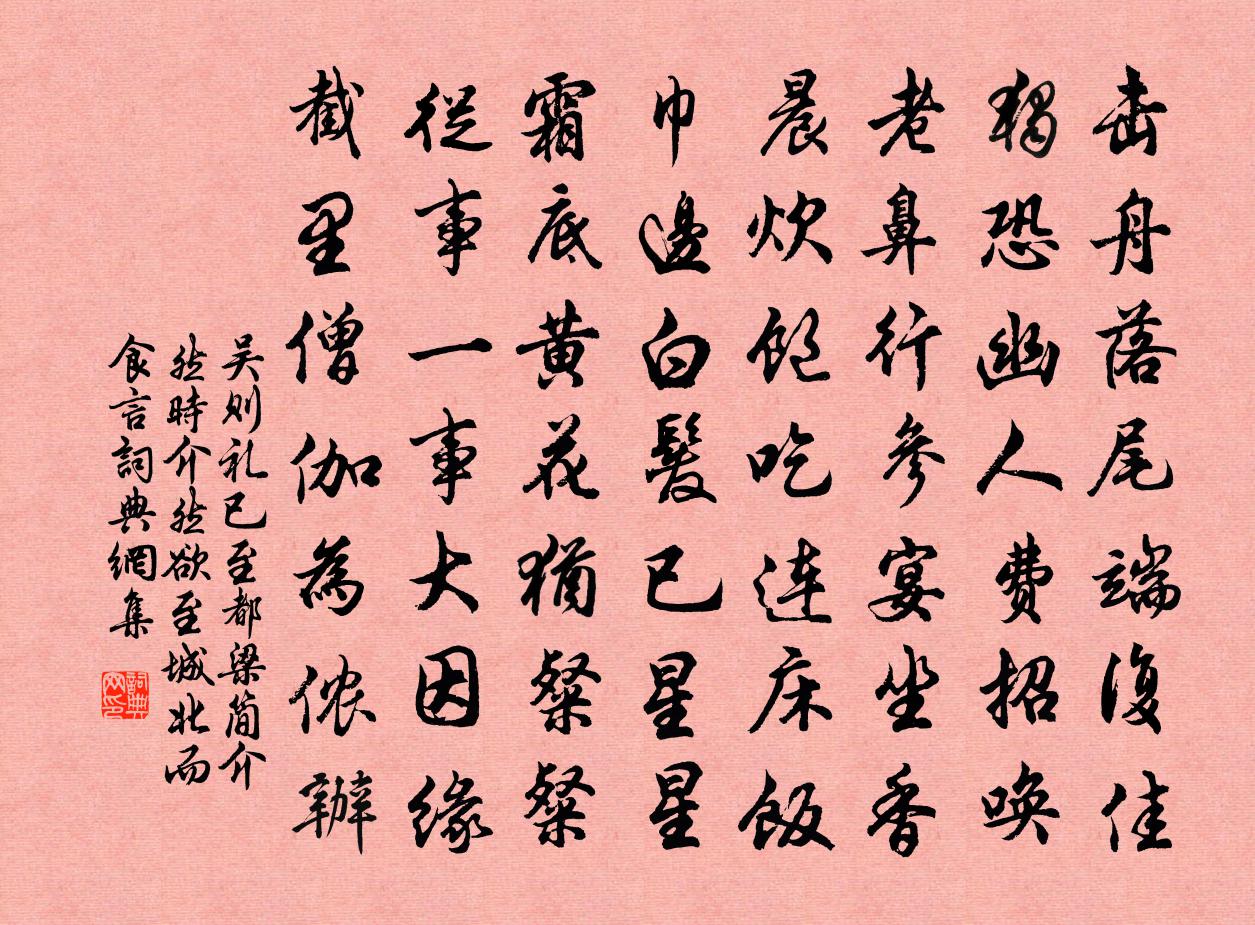 击舟落尾端復佳
獨恐幽人費招喚
老鼻行參宴坐香
晨炊飽吃連床飯
巾邊白髮已星星
霜底黃花猶粲粲
從事一事大因緣
截里僧伽為儂辦
吴則礼已至都梁簡介
然時介然欲至城北而
食言詞典網集
詞典网印